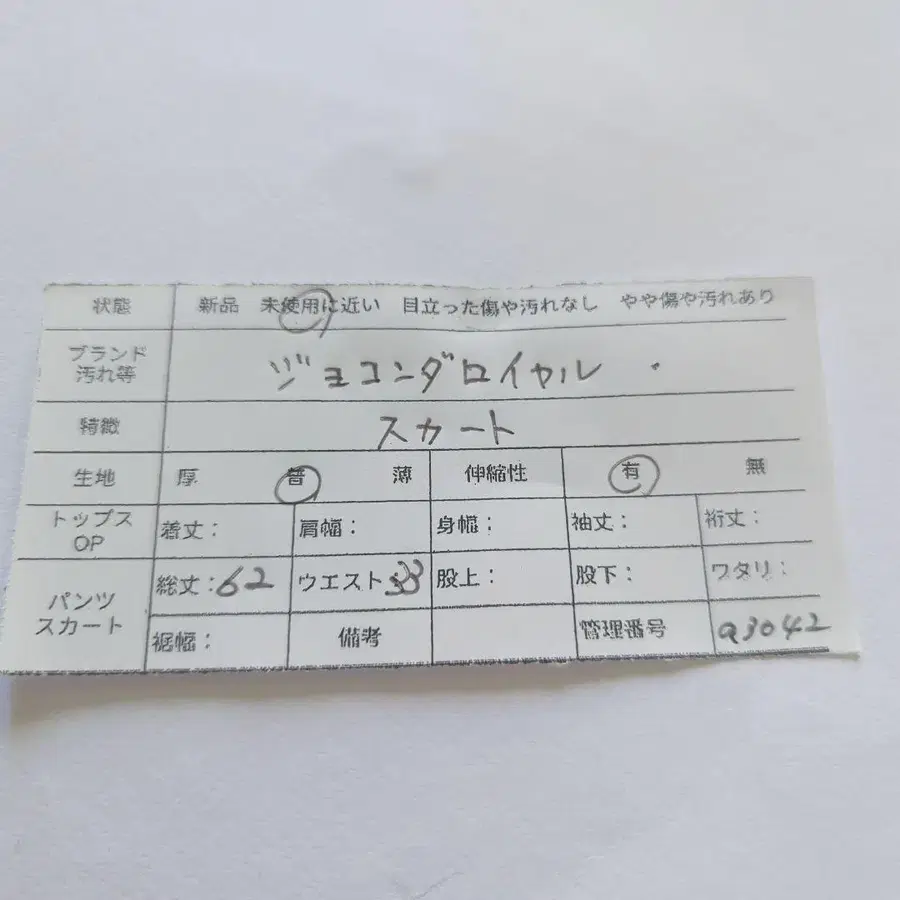 状態 新品 未使用に近い 目立った傷や汚れなし やや傷や汚れあり
ブランド
汚れ等 ジョコンダロイヤル
特徴 スカート
生地 厚 普 薄 伸縮性 有 無
トップス
OP 着丈: 肩幅: 身幅: 袖丈: 裄丈:
パンツ
スカート 総丈:62 ウエスト:33 股上: 股下: ワタリ:
裾幅: 備考 管理番号 a3042